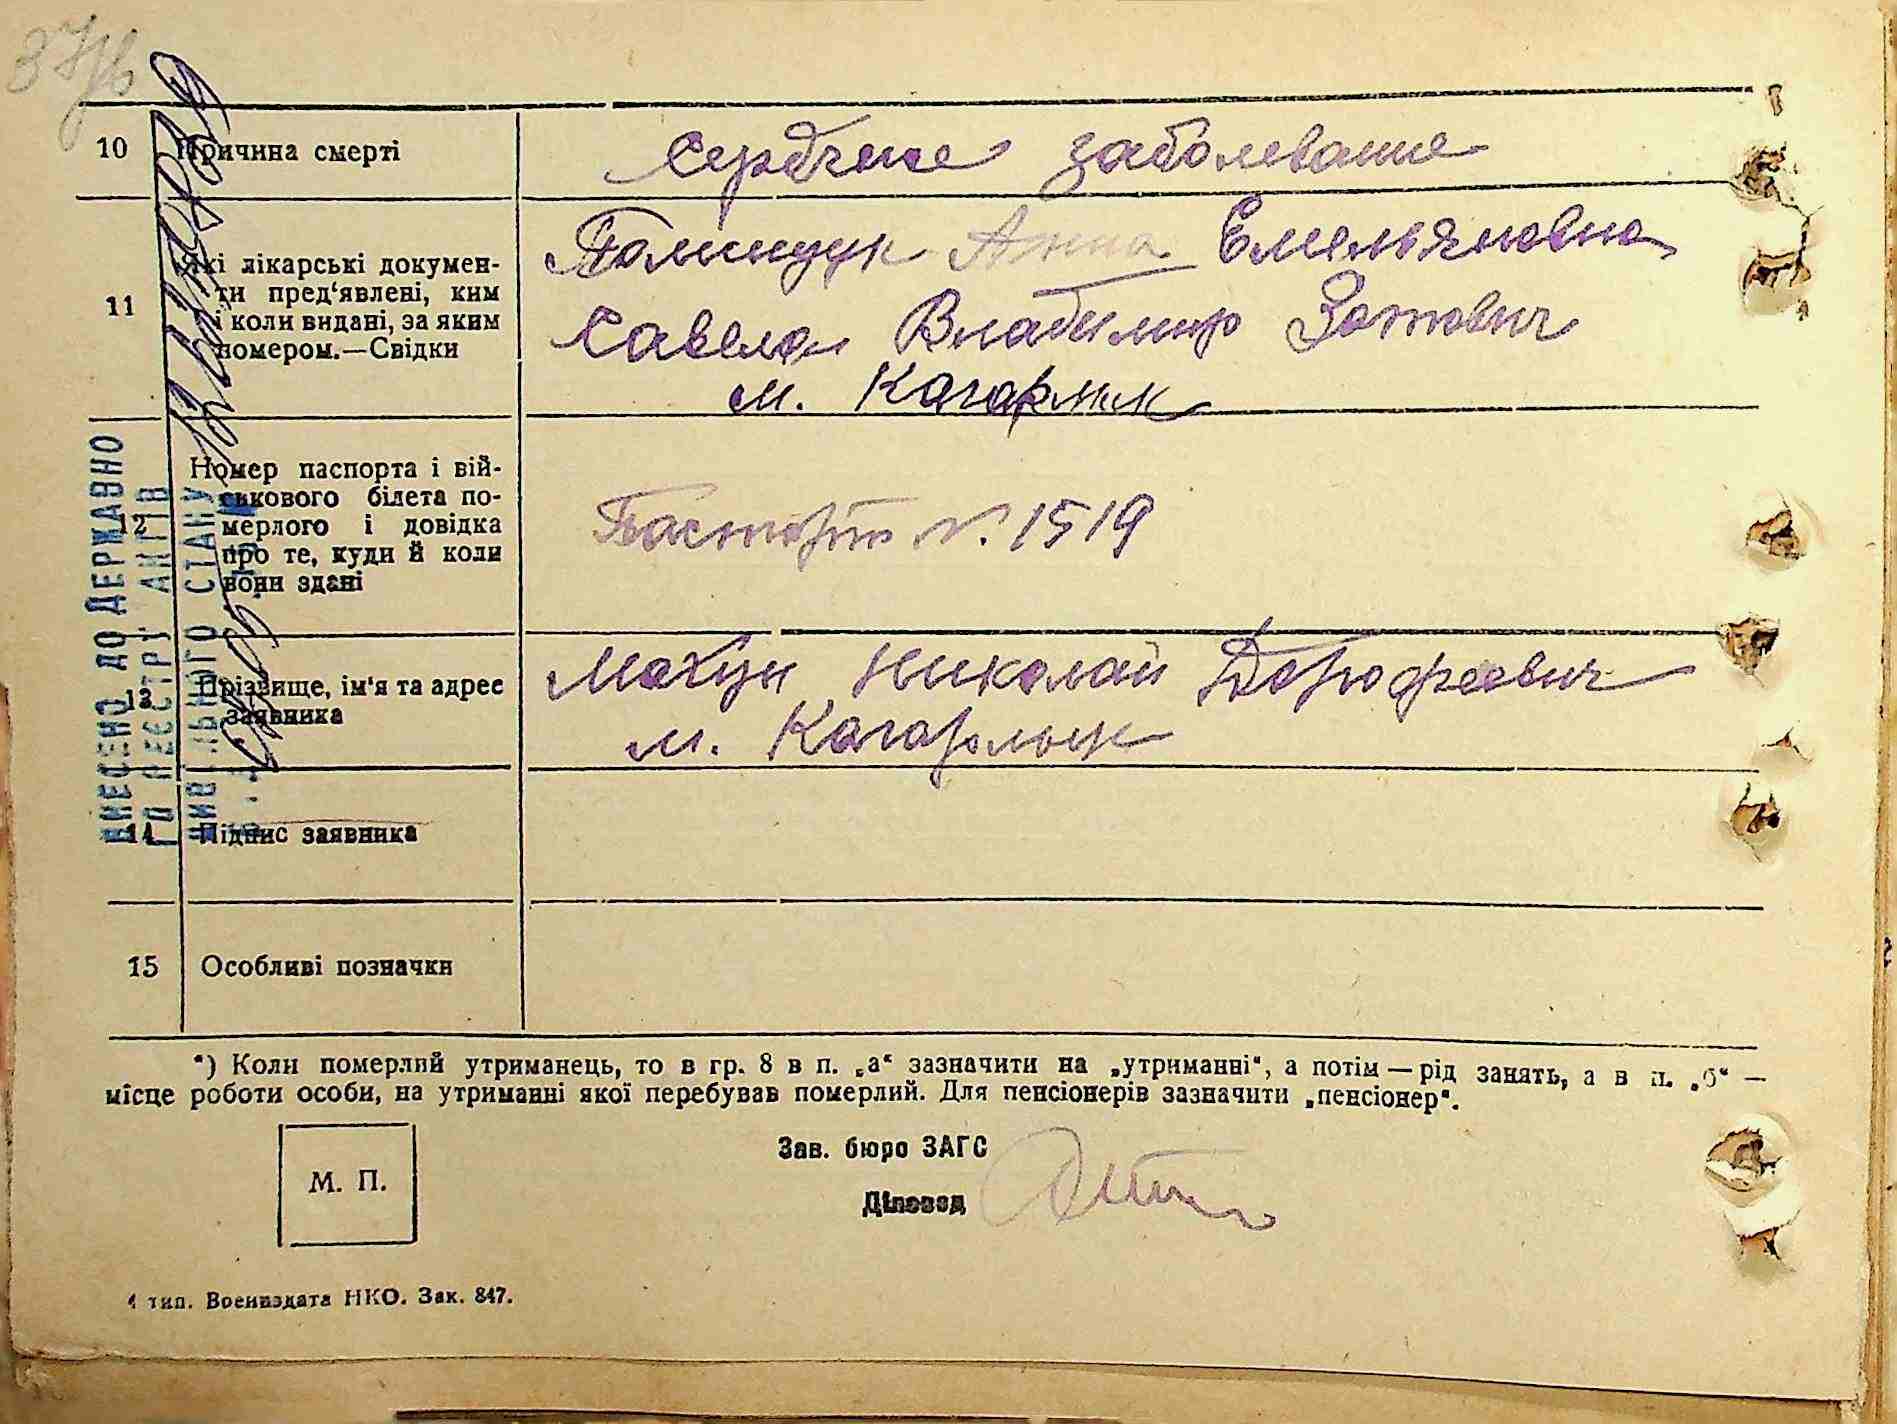 10 Причина смерті
сердчне заболевание
11 Які лікарські докумен-
ти пред'явлені, ким
і коли видані, за яким
номером.—Свідки
Анна Емельяновна
Владимир Зотович
м. Кагарлик
12 Номер паспорта і вій-
ськового білета по-
мерлого і довідка
про те, куди й коли
вони здані
Паспорт N. 1519
13 Прізвище, ім'я та адрес
заявника
Махун Николай Дорофеевич
м. Кагарлык
14 Підпис заявника
15 Особливі позначки
*) Коли померлий утриманець, то в гр. 8 в п. „а“ зазначити на „утриманні“, а потім — рід занять, а в п. „б“ —
місце роботи особи, на утриманні якої перебував померлий. Для пенсіонерів зазначити „пенсіонер“.
Зав. бюро ЗАГС
М. П.
Діловод
4 тип. Воениздата НКО. Зак. 847.
ВНЕСЕНО ДО ДЕРЖАВНО
ГО РЕЄСТРУ АКТІВ
ЦИВІЛЬНОГО СТАНУ